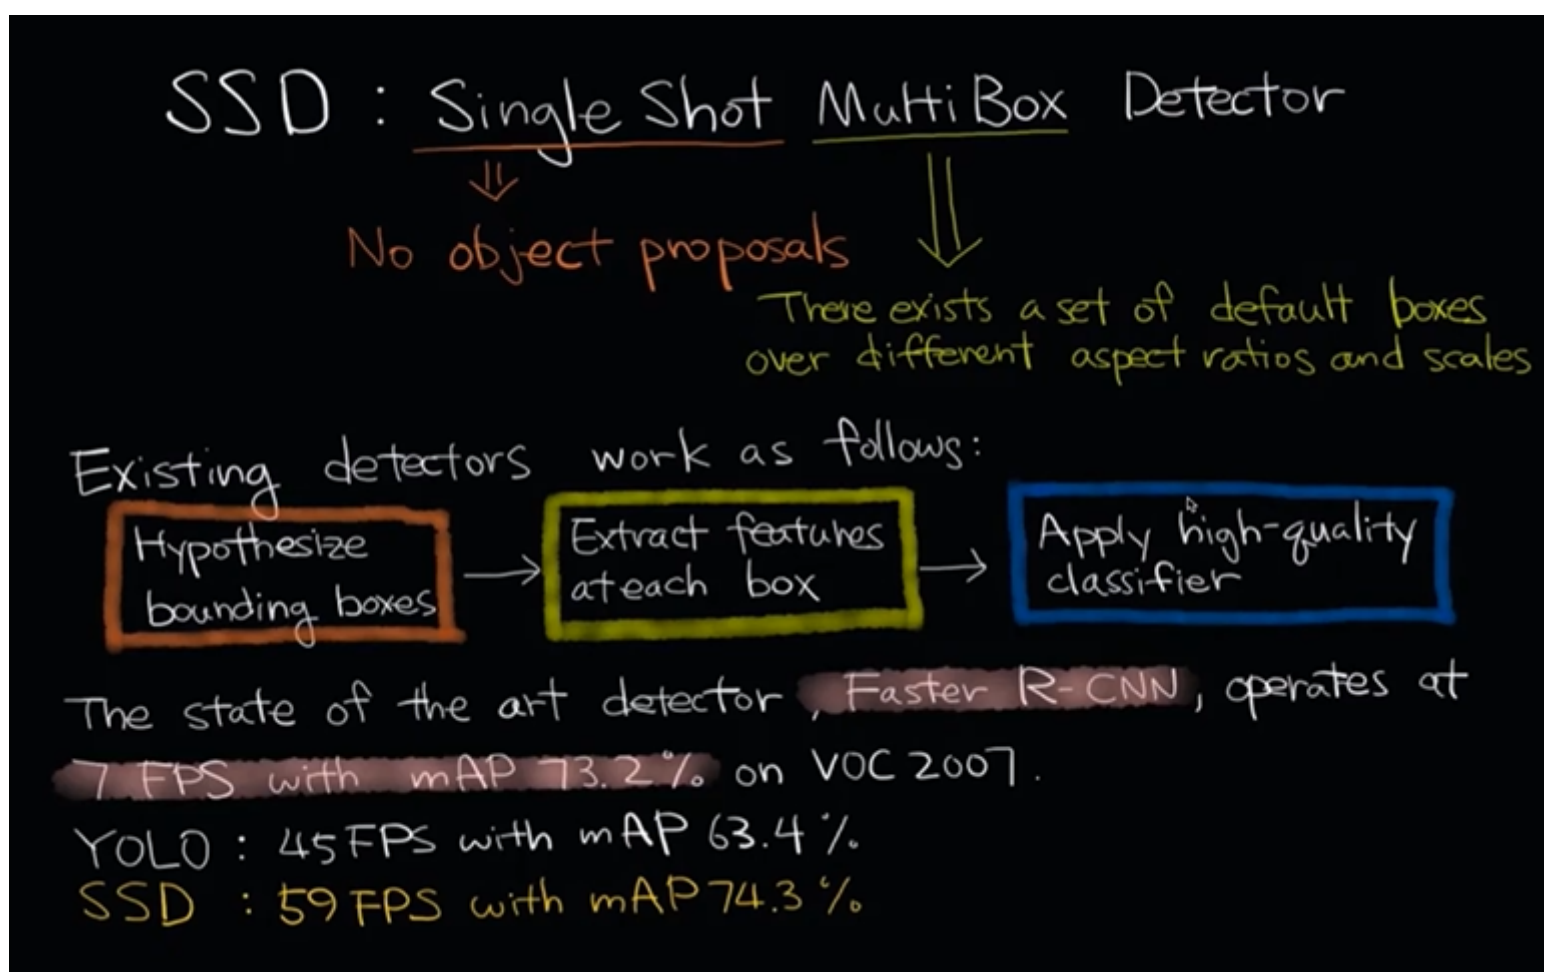 SSD : Single Shot MultiBox Detector
No object proposals
There exists a set of default boxes
over different aspect ratios and scales
Existing detectors work as follows:
Hypothesize
bounding boxes
Extract features
at each box
Apply high-quality
classifier
The state of the art detector, Faster R-CNN, operates at
7 FPS with mAP 73.2% on VOC 2007.
YOLO : 45 FPS with mAP 63.4%
SSD : 59 FPS with mAP 74.3%